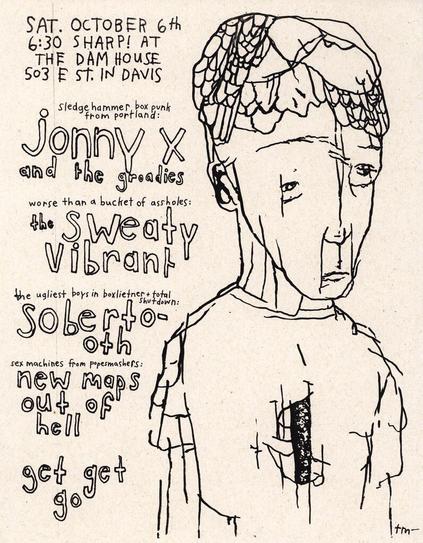 SAT. OCTOBER 6th
6:30 SHARP! AT
THE DAM HOUSE
503 E ST. IN DAVIS
sledgehammer, box punk
from portland:
jonny x
and the groadies
worse than a bucket of assholes:
the sweaty
vibrant
the ugliest boys in boxlietner + total
shutdown:
sobertooth
sex machines from popesmashers:
new maps
out of
hell
get get
go
tm-